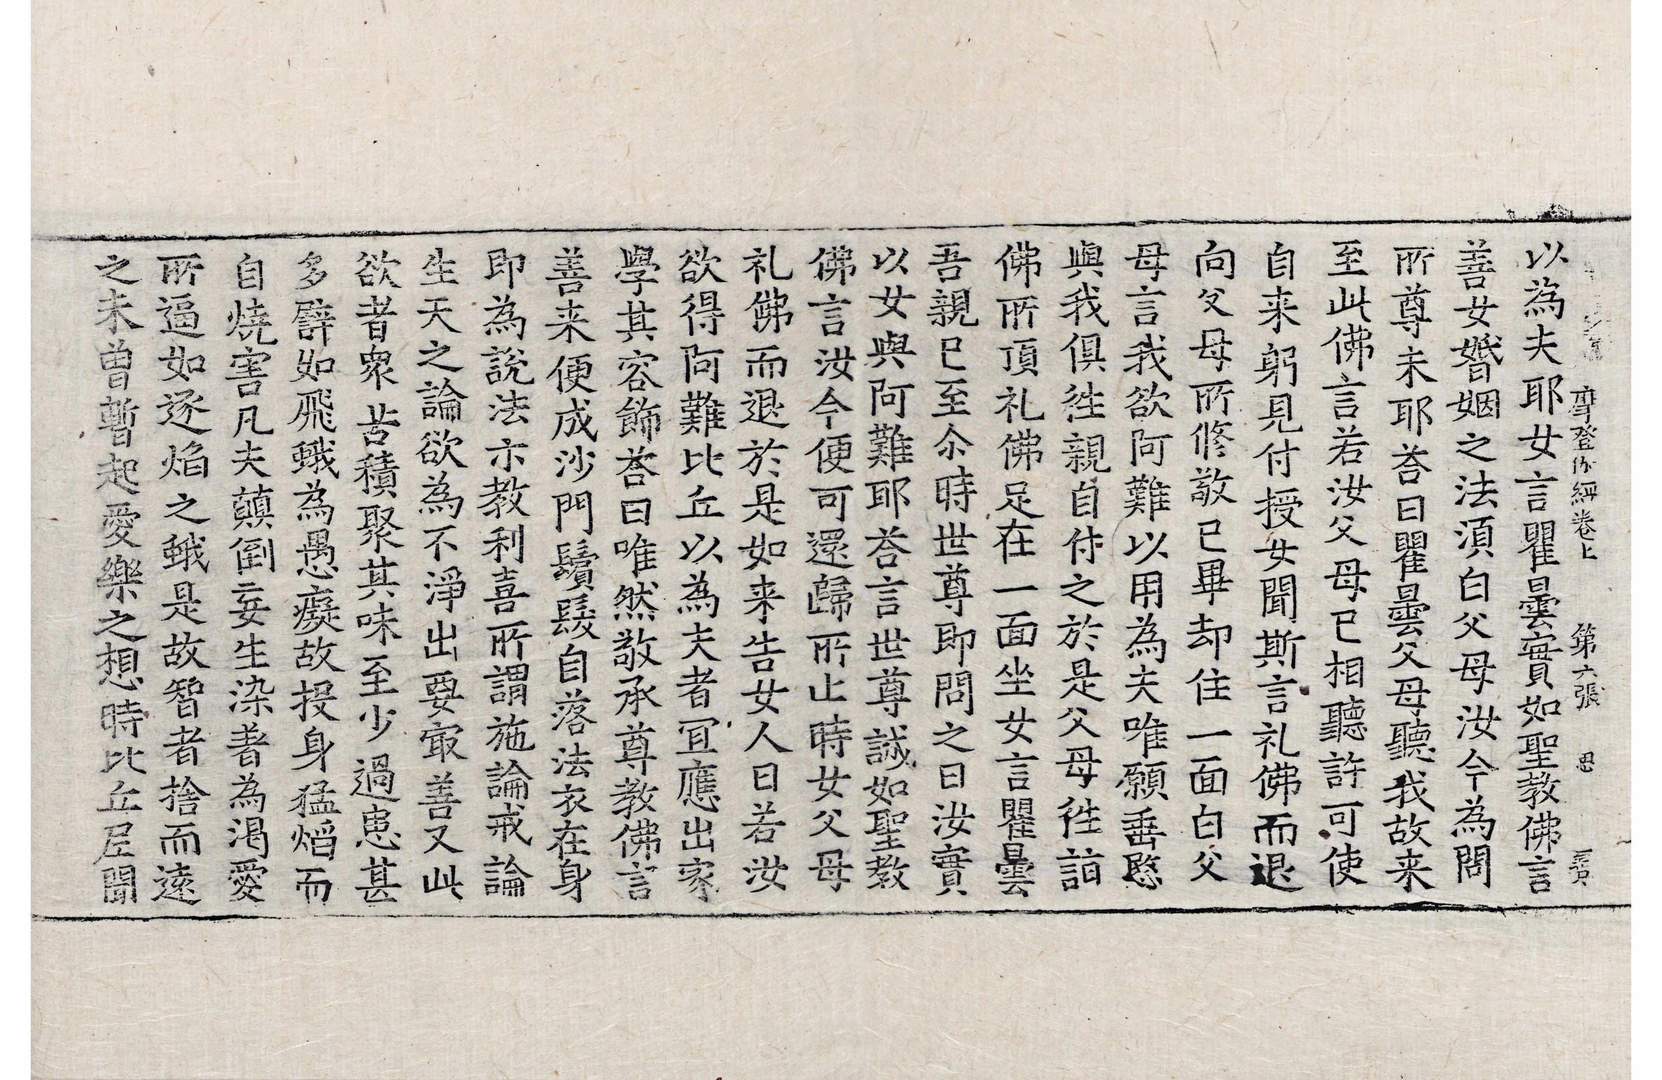 摩登伽經卷上　第六張　思
以為夫耶女言瞿曇實如聖教佛言
善女婚姻之法湏白父母汝今為問
所尊未耶荅曰瞿曇父母聽我故来
至此佛言若汝父母已相聽許可使
自来躬見付授女聞斯言礼佛而退
向父母所脩敬已畢却住一面白父
母言我欲阿難以用為夫唯願垂愍
與我俱徃親自付之於是父母徃詣
佛所頂礼佛足在一面坐女言瞿曇
吾親已至尒時世尊即問之曰汝實
以女與阿難耶荅言世尊誠如聖教
佛言汝今便可還歸所止時女父母
礼佛而退於是如来告女人曰若汝
欲得阿難比丘以為夫者冝應出家
學其容飾荅曰唯然敬承尊教佛言
善来便成沙門鬚髮自落法衣在身
即為説法示教利喜所謂施論戒論
生天之論欲為不淨出要㝡善又此
欲者衆苦積聚其味至少過患甚
多譬如飛蛾為愚癡故投身猛焰而
自燒害凡夫顛倒妄生染著為渇愛
所逼如逐焰之蛾是故智者捨而遠
之未曾暫起愛樂之想時比丘尼聞